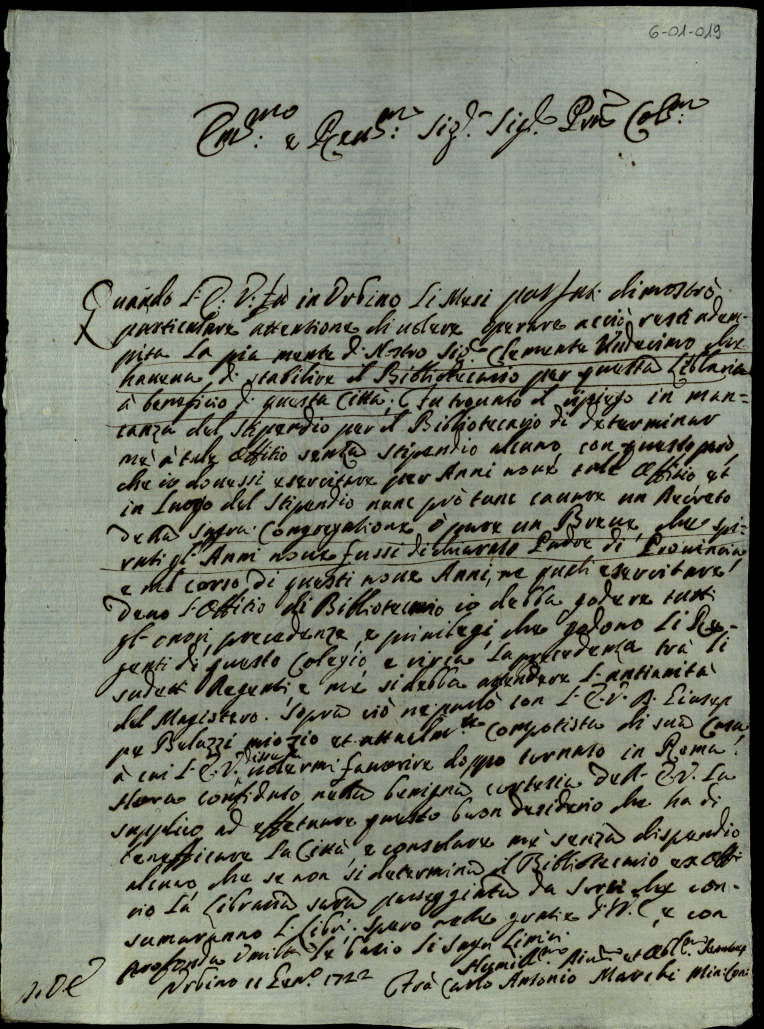 6-01-019
Em:mo e Reu:mo Sig.r Sig.r Pron Col:mo
Quando l'E. V. fù in Urbino li Mesi passati dimostrò
particulare attentione di uolere operare acciò resti adem-
pita la pia mente di Nostro Sig.r Clemente Undecimo che
haueua di stabilire il Bibliotecario per questa Libraria
à beneficio di questa Città. Fu trouato il ripiego in man=
canza del stipendio per il Bibliotecario di determinar
mè à tale Offitio senza stipendio alcuno, con questo però
che io douessi esercitare per Anni noue tale Offitio et
in luogo del stipendio nunc prò tunc cauare un Decreto
della Sagra Congregatione ò pure un Breue, che spi-
rati gl'Anni noue fussi dichiarato Padre di Prouincia
e nel corso di questi noue Anni, ne quali esercitare
deuo l'Offitio di Bibliotecario io debba godere tutti
gl'onori, precedenze, e priuilegi che godono li Reg-
genti di questo Colegio e circa la precedenza trà li
sudetti Regenti e mè si debba attendere l'antianità
del Magistero. Soprà ciò ne parlò con l'E. V. il Giusep
pe Beluzzi mio zio et attualm.te Compotista di sua Casa
à cui l'E. V. disse uolermi fauorire doppo tornato in Roma.
Hora confidato nella benigna cortesia dell'E. V. La
supplico ad effettuare questo buon desiderio che ha di
beneficare la Città e consolare mè senza dispendio
alcuno che se non si determina il Bibliotecario ex Offi
cio la Libraria sarà passeggiata da sorci che con-
sumaranno l. Libri. Spero nelle gratie di V. E. e con
profonda umiltà le bacio li sagri Limini.
Urbino 11 Gen.o 1722
Humiliss.mo Diu.mo et Obl.mo Seruitore
Frà Carlo Antonio Marchi Min: Con: